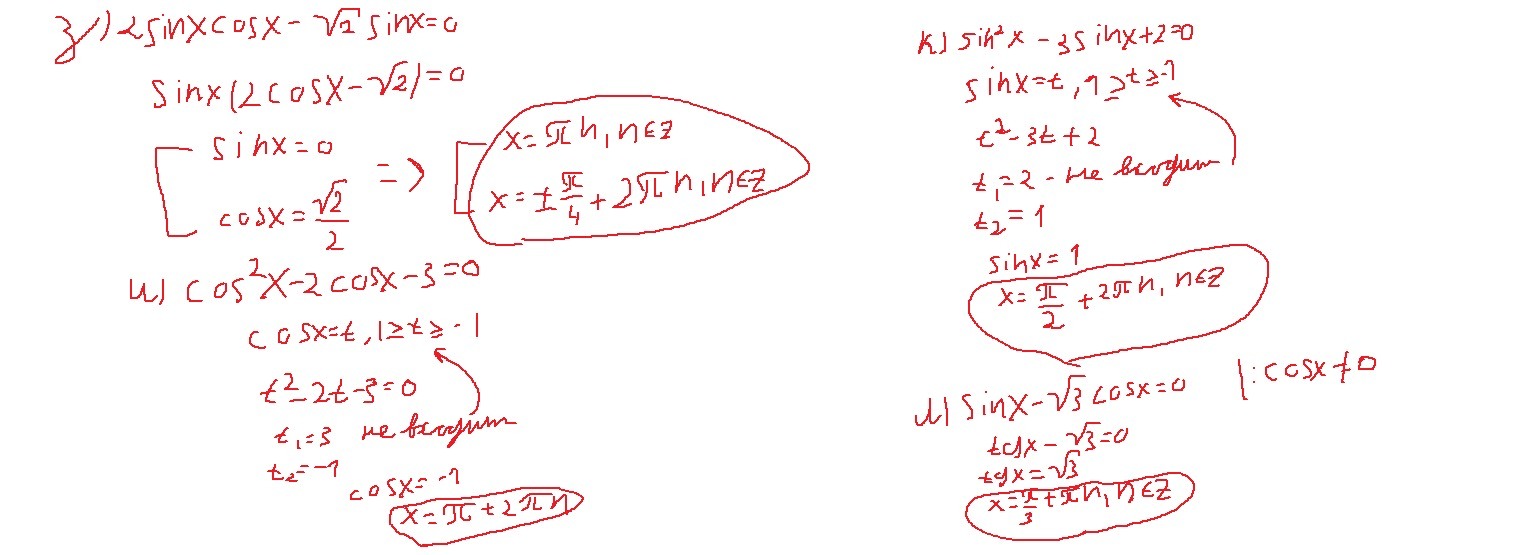 з) 2sinxcosx - √2 sinx=0
sinx(2cosx-√2)=0
sinx=0
cosx=√2/2
=>
x=πn, n∈Z
x=±π/4+2πn, n∈Z
и) cos²x-2cosx-3=0
cosx=t, 1≥t≥-1
t²-2t-3=0
t₁=3 не входит
t₂=-1
cosx=-1
x=π+2πn
к) sin²x-3sinx+2=0
sinx=t, 1≥t≥-1
t²-3t+2
t₁=2 - не входит
t₂=1
sinx=1
x=π/2+2πn, n∈Z
л) sinx-√3cosx=0 |:cosx≠0
tgx-√3=0
tgx=√3
x=π/3+πn, n∈Z